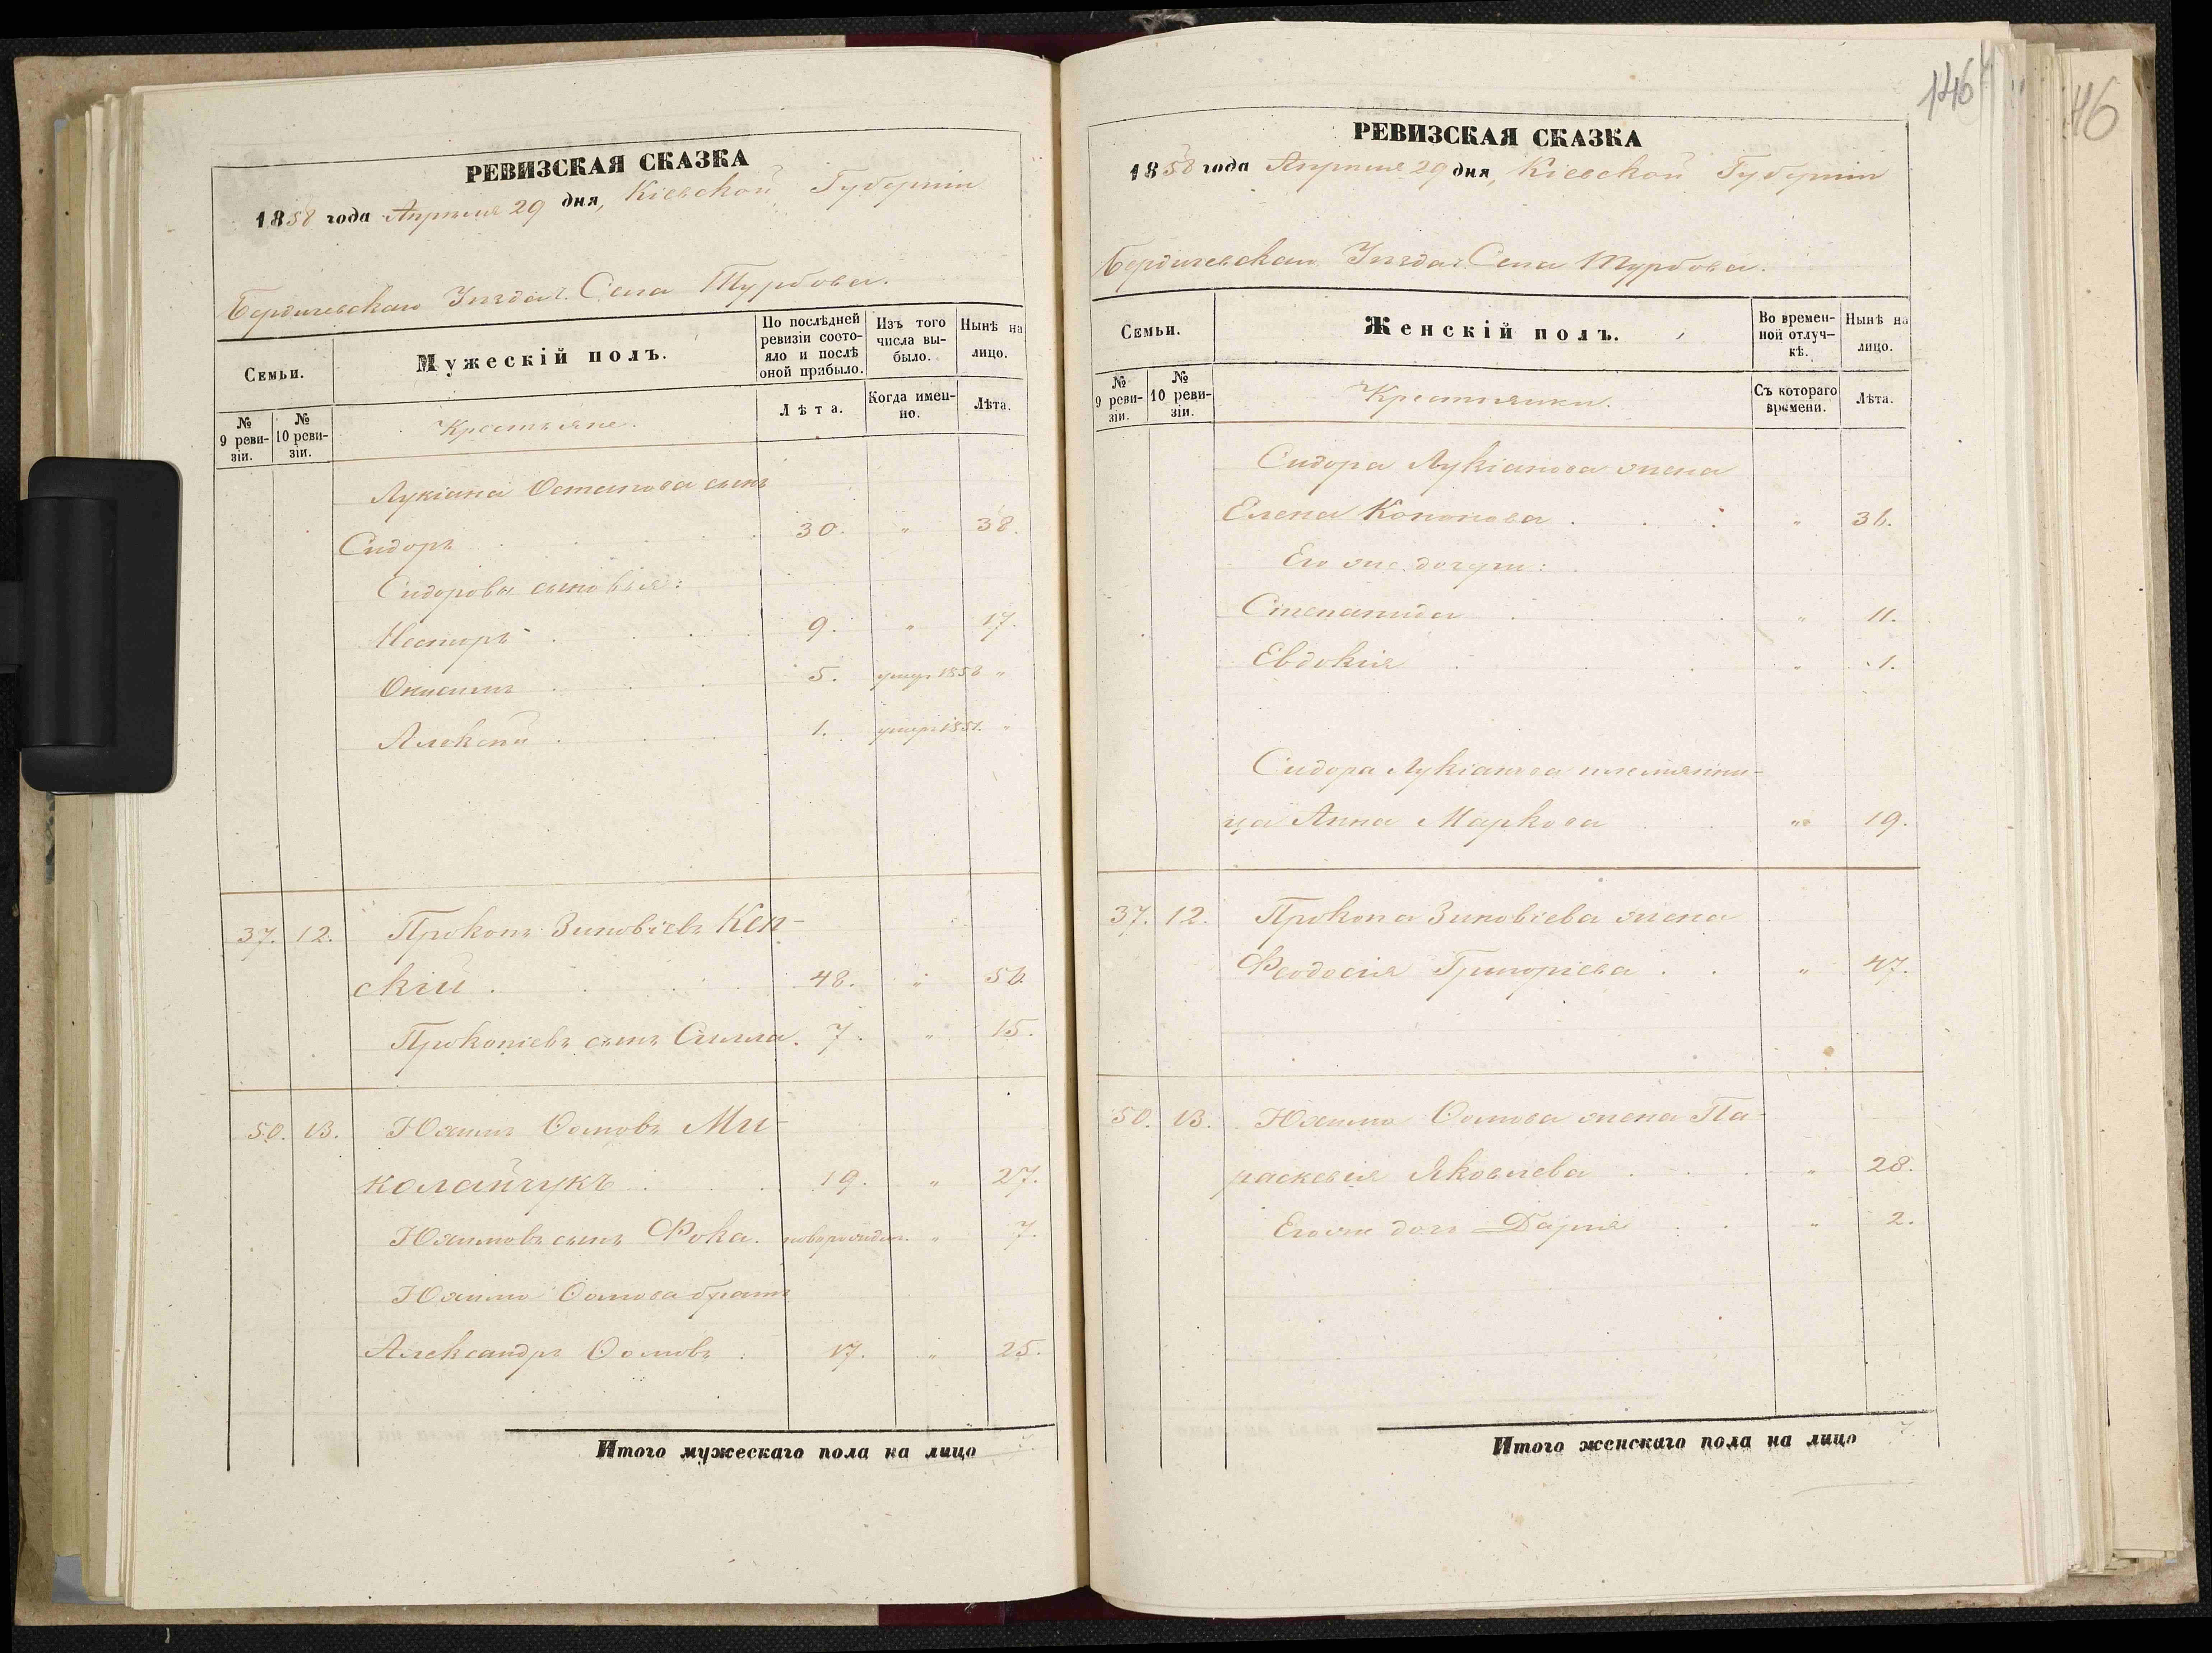 РЕВИЗСКАЯ СКАЗКА
1858 года Апрѣля 29 дня, Кіевской Губерніи
Бердичевскаго Уѣзда Села Турбова.
Семьи.
Мужескій полъ.
По послѣдней ревизіи состояло и послѣ оной прибыло.
Изъ того числа выбыло.
Нынѣ на лицо.
№ 9 ревизіи.
№ 10 ревизіи.
Крестьяне.
Лѣта.
Когда именно.
Лѣта.
Лукіана Остапова сынъ
Сидоръ 30. " 38.
Сидоровы сыновья:
Несторъ 9. " 17.
Онисимъ 5. умеръ 1858 "
Алексѣй 1. умеръ 1851. "
37. 12. Прокопъ Зиновіевъ Кен-
скій 48. " 56
Прокопіевъ сынъ Силла. 7. " 15.
50. 13. Юхимъ Ми-
колайчукъ 19. " 27.
Юхимовъ сынъ Фока. новорожден. " 7.
Юхима братъ
Александръ 17. " 25.
Итого мужескаго пола на лицо
146
46
РЕВИЗСКАЯ СКАЗКА
1858 года Апрѣля 29 дня, Кіевской Губерніи
Бердичевскаго Уѣзда Села Турбова.
Семьи.
Женскій полъ.
Во временной отлучкѣ.
Нынѣ на лицо.
№ 9 ревизіи.
№ 10 ревизіи.
Крестьянки.
Съ котораго времени.
Лѣта.
Сидора Лукіанова жена
Елена Кононова " 36.
Его же дочери:
Степанида " 11.
Евдокія " 1.
Сидора Лукіанова племянни-
ца Анна Маркова " 19.
37. 12. Прокопа Зиновіева жена
Феодосія Григоріева " 47.
50. 13. Юхима жена Па-
раскевія Яковлева " 28.
Его же дочь Дарія " 2.
Итого женскаго пола на лицо 7